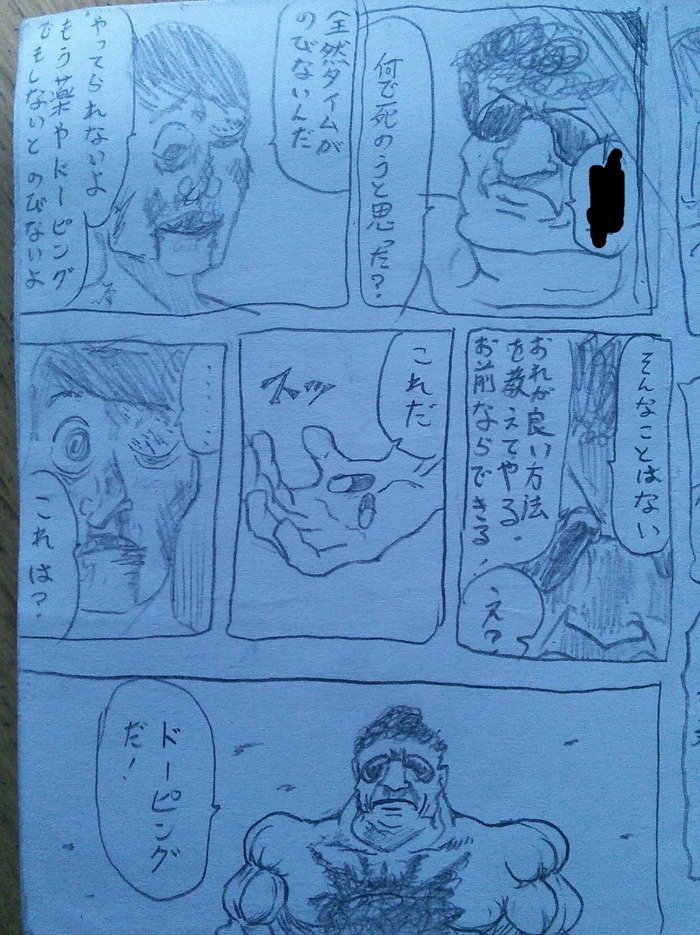 何で死のうと思った？
全然タイムが
のびないんだ
やってられないよ
もう薬やドーピング
でもしないとのびないよ
そんなことはない
おれが良い方法
を教えてやる．
お前ならできる！
え？
これだ
スッ
……
これは？
ドーピング
だ！